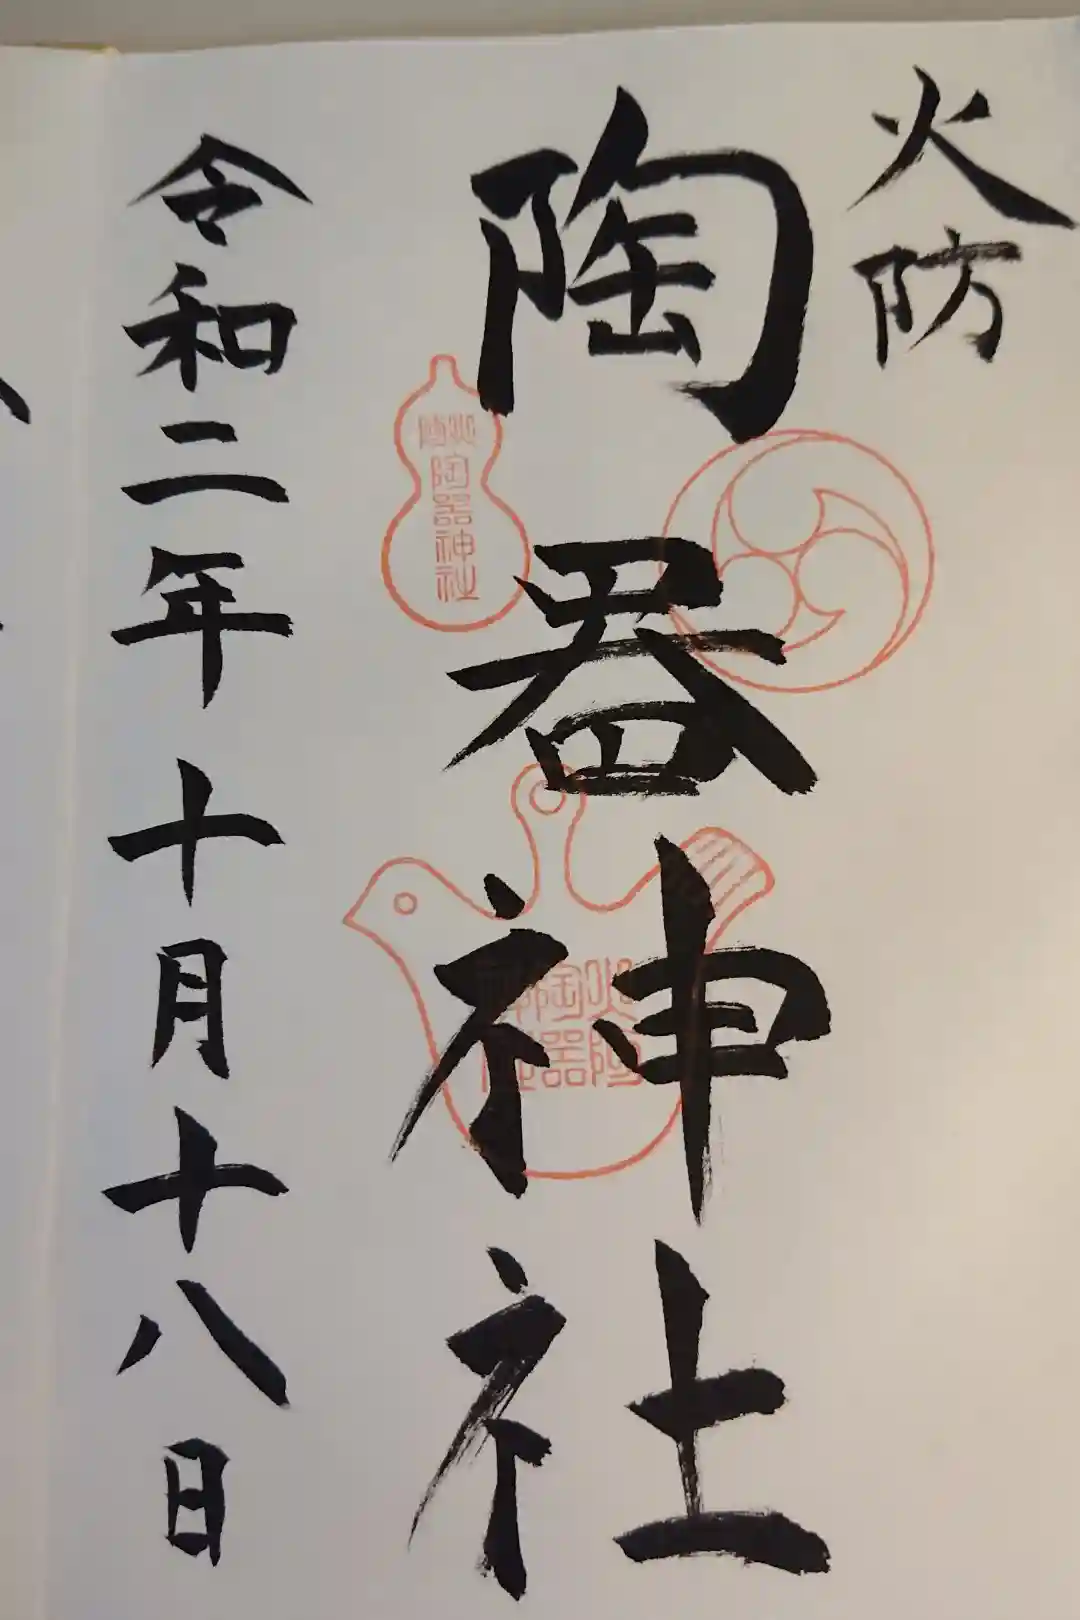 火防
陶器神社
火防
陶器神社
火防
陶器
神社
令和二年十月十八日